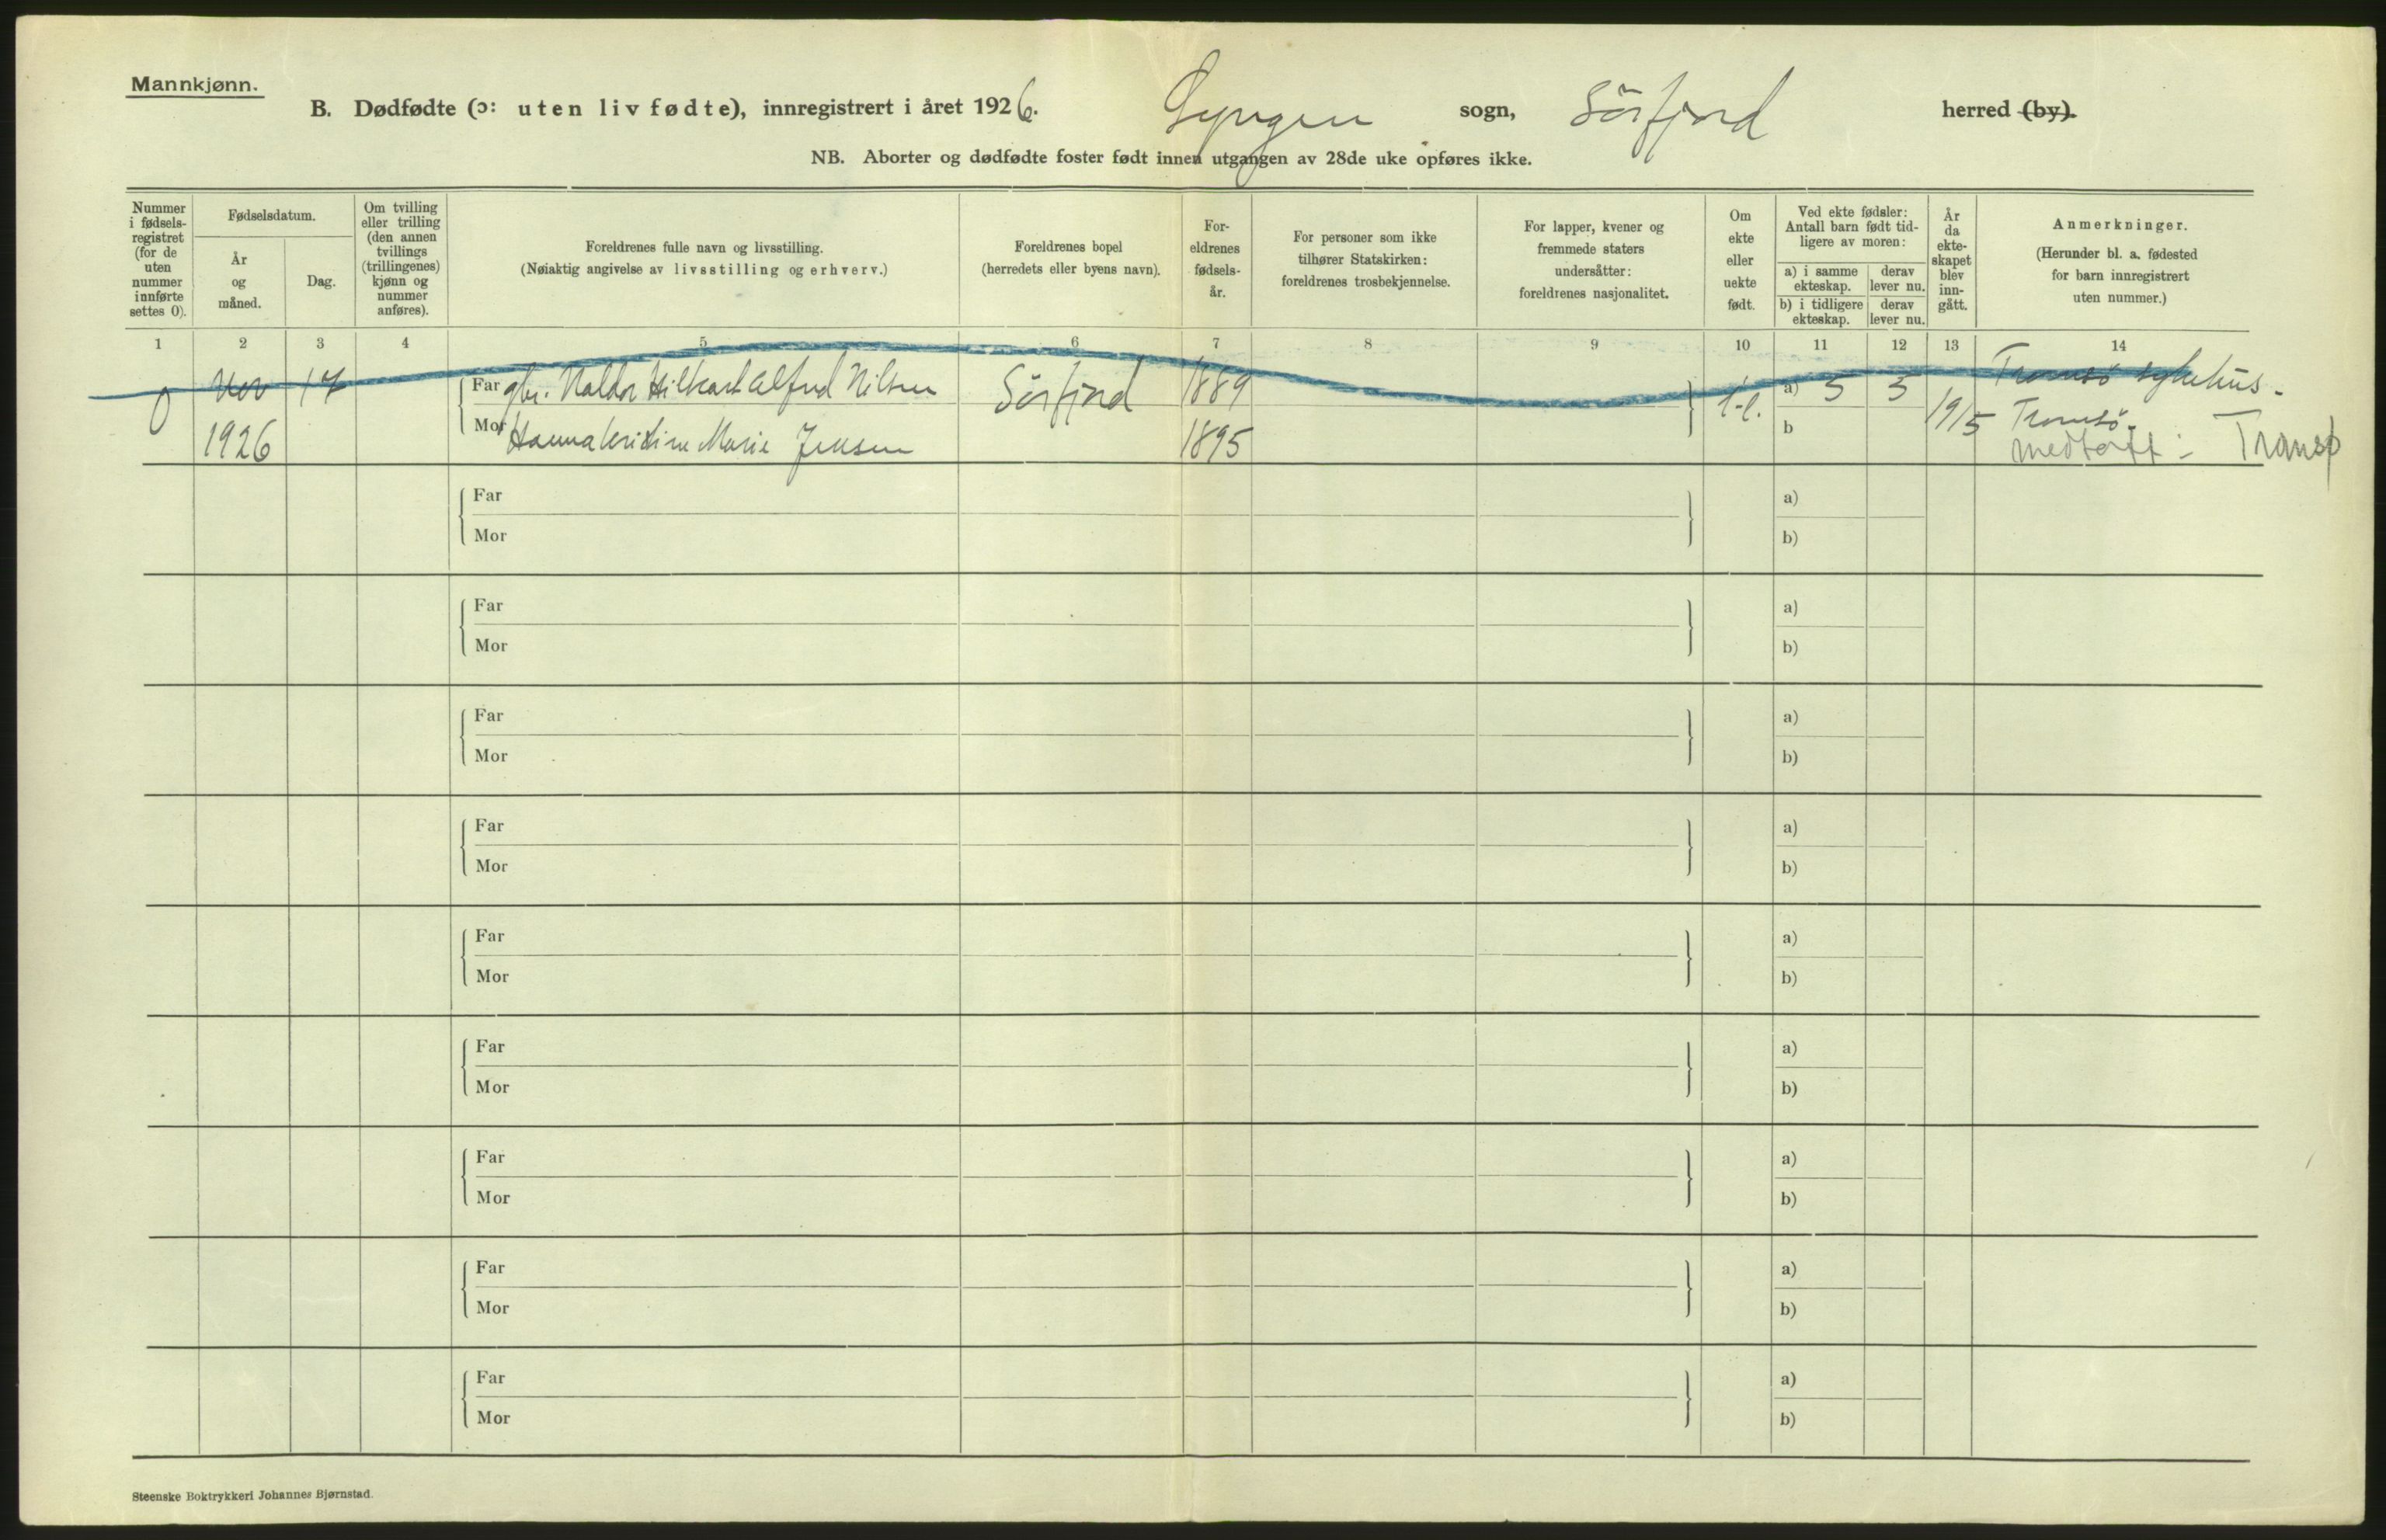 Mannkjønn.
B. Dødfødte (ɔ: uten liv fødte), innregistrert i året 1926. Lyngen sogn, Sörfjord herred (by).
NB. Aborter og dødfødte foster født innen utgangen av 28de uke opføres ikke.
Nummer i fødsels-registret (for de uten nummer innførte settes 0).
Fødselsdatum.
År og måned.
Dag.
Om tvilling eller trilling (den annen tvillings (trillingenes) kjønn og nummer anføres).
Foreldrenes fulle navn og livsstilling.
(Nøiaktig angivelse av livsstilling og erhverv.)
Foreldrenes bopel
(herredets eller byens navn).
For-eldrenes fødsels-år.
For personer som ikke tilhører Statskirken: foreldrenes trosbekjennelse.
For lapper, kvener og fremmede staters undersåtter: foreldrenes nasjonalitet.
Om ekte eller uekte født.
Ved ekte fødsler: Antall barn født tid-ligere av moren:
a) i samme ekteskap.
derav lever nu.
b) i tidligere ekteskap.
derav lever nu.
År da ekte-skapet blev inn-gått.
Anmerkninger.
(Herunder bl. a. fødested for barn innregistrert uten nummer.)
1 2 3 4 5 6 7 8 9 10 11 12 13 14
0 Nov 17 Far gbr. Alfred Nilsen Sörfjord 1889 a) 5 5 1915 Tromsö sykehus.
1926 Mor Hanna Marie Jensen 1895 b Tromsö.
medtatt - Transp
Far a)
Mor b)
Far a)
Mor b)
Far a)
Mor b)
Far a)
Mor b)
Far a)
Mor b)
Far a)
Mor b)
Far a)
Mor b)
Far a)
Mor b)
Far a)
Mor b)
Steenske Boktrykkeri Johannes Bjørnstad.